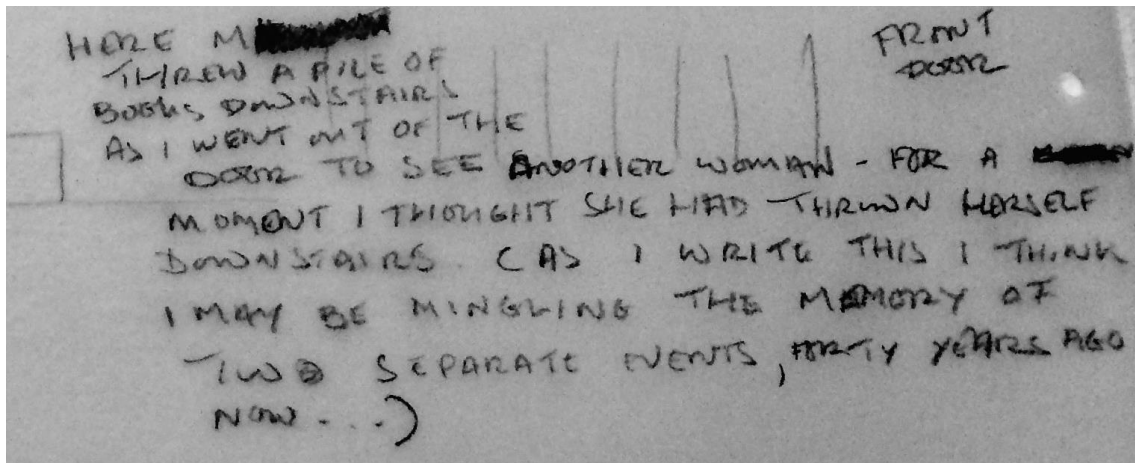 HERE M
THREW A PILE OF
BOOKS DOWNSTAIRS
AS I WENT OUT OF THE
DOOR TO SEE ANOTHER WOMAN - FOR A
MOMENT I THOUGHT SHE HAD THROWN HERSELF
DOWNSTAIRS. (AS I WRITE THIS I THINK
I MAY BE MINGLING THE MEMORY OF
TWO SEPARATE EVENTS, FORTY YEARS AGO
NOW....)
FRONT
DOOR